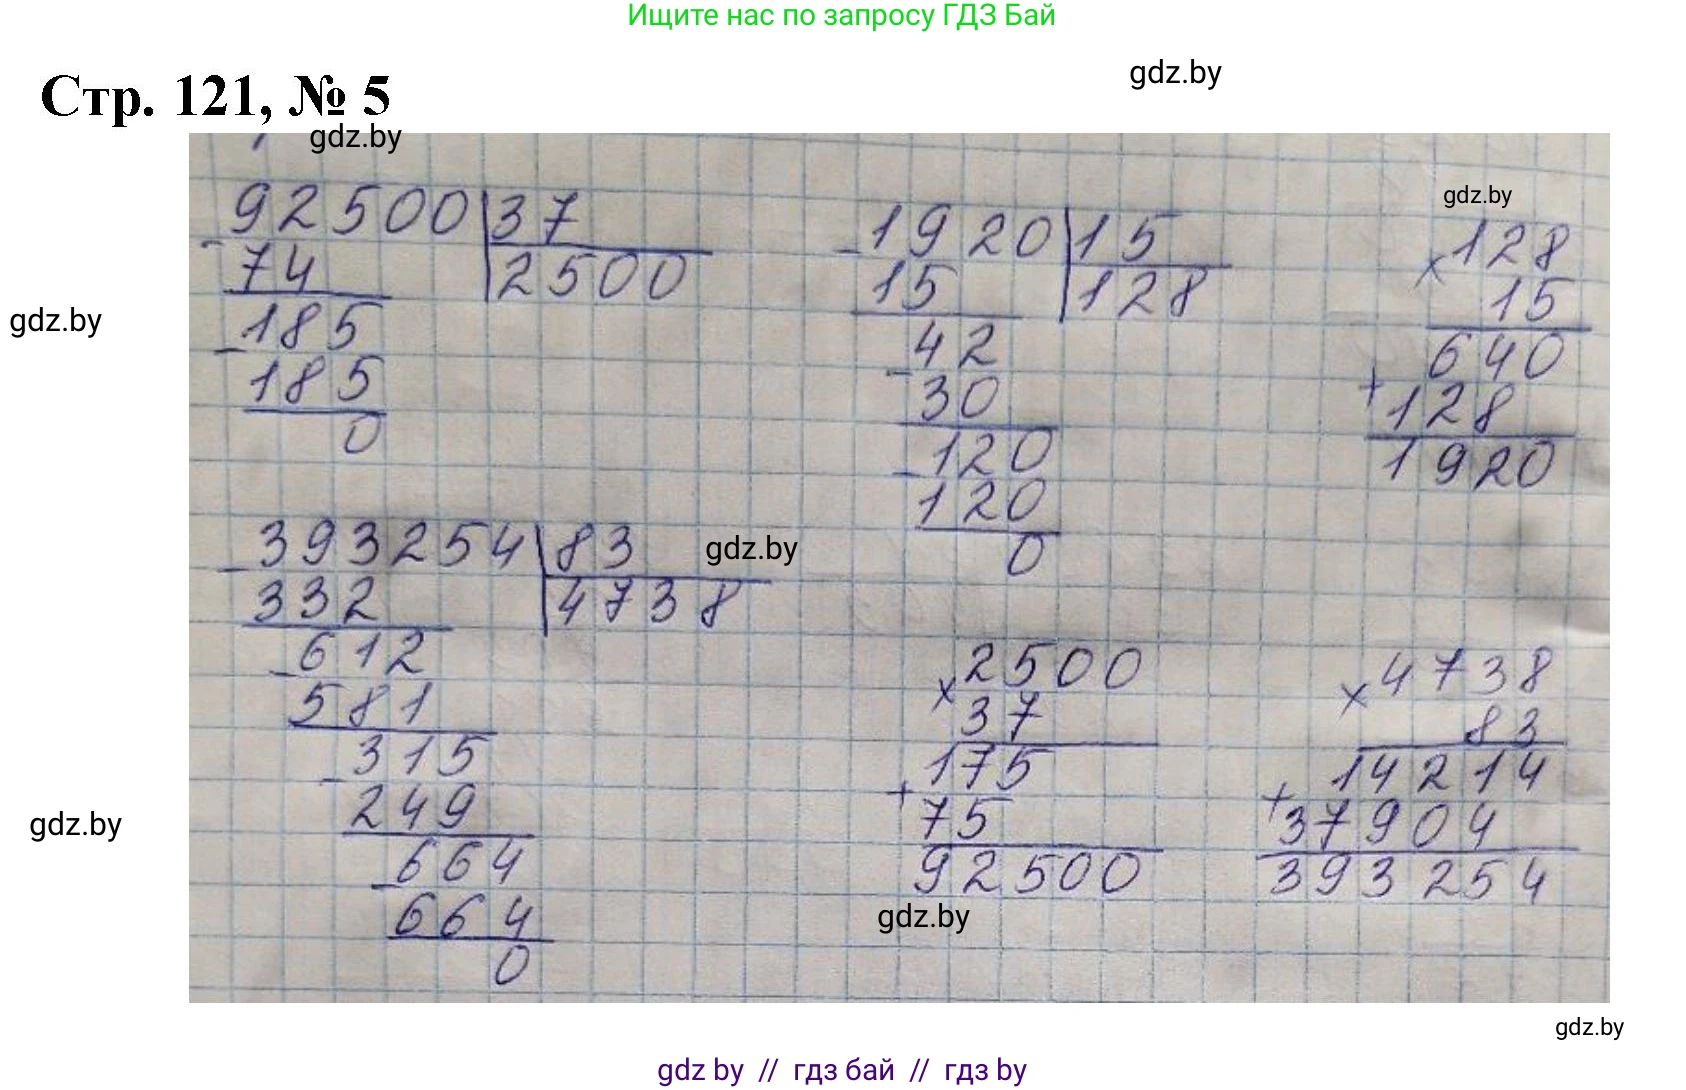 Ищите нас по запросу ГДЗ Бай
gdz.by
Стр. 121, № 5
gdz.by
92500 | 37
- 74 | 2500
185
- 185
0
1920 | 15
- 15 | 128
42
- 30
120
- 120
0
gdz.by
128
× 15
640
+ 128
1920
gdz.by
393254 | 83
- 332 | 4738
612
- 581
315
- 249
664
- 664
0
gdz.by
2500
× 37
175
+ 75
92500
4738
× 83
14214
+ 37904
393254
gdz.by
gdz.by
gdz.by
gdz by // гдз бай // гдз by